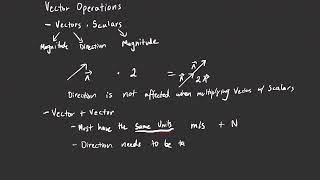 Vector Operations
- Vectors . Scalars
Magnitude Direction Magnitude
A · 2 = A 2A
Direction is not affected when multiplying Vectors w/ Scalars
- Vector + Vector
- Must have the Same Units m/s + N
- Direction needs to be ta